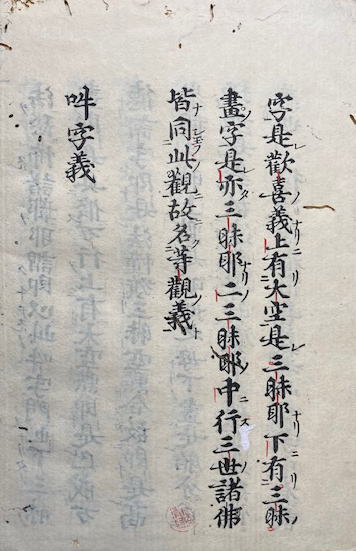 字是歡喜義上有大空是三昧耶下有三昧
畫字是亦三昧耶二三昧耶中行三世諸佛
皆同此觀故名等觀義
吽字義